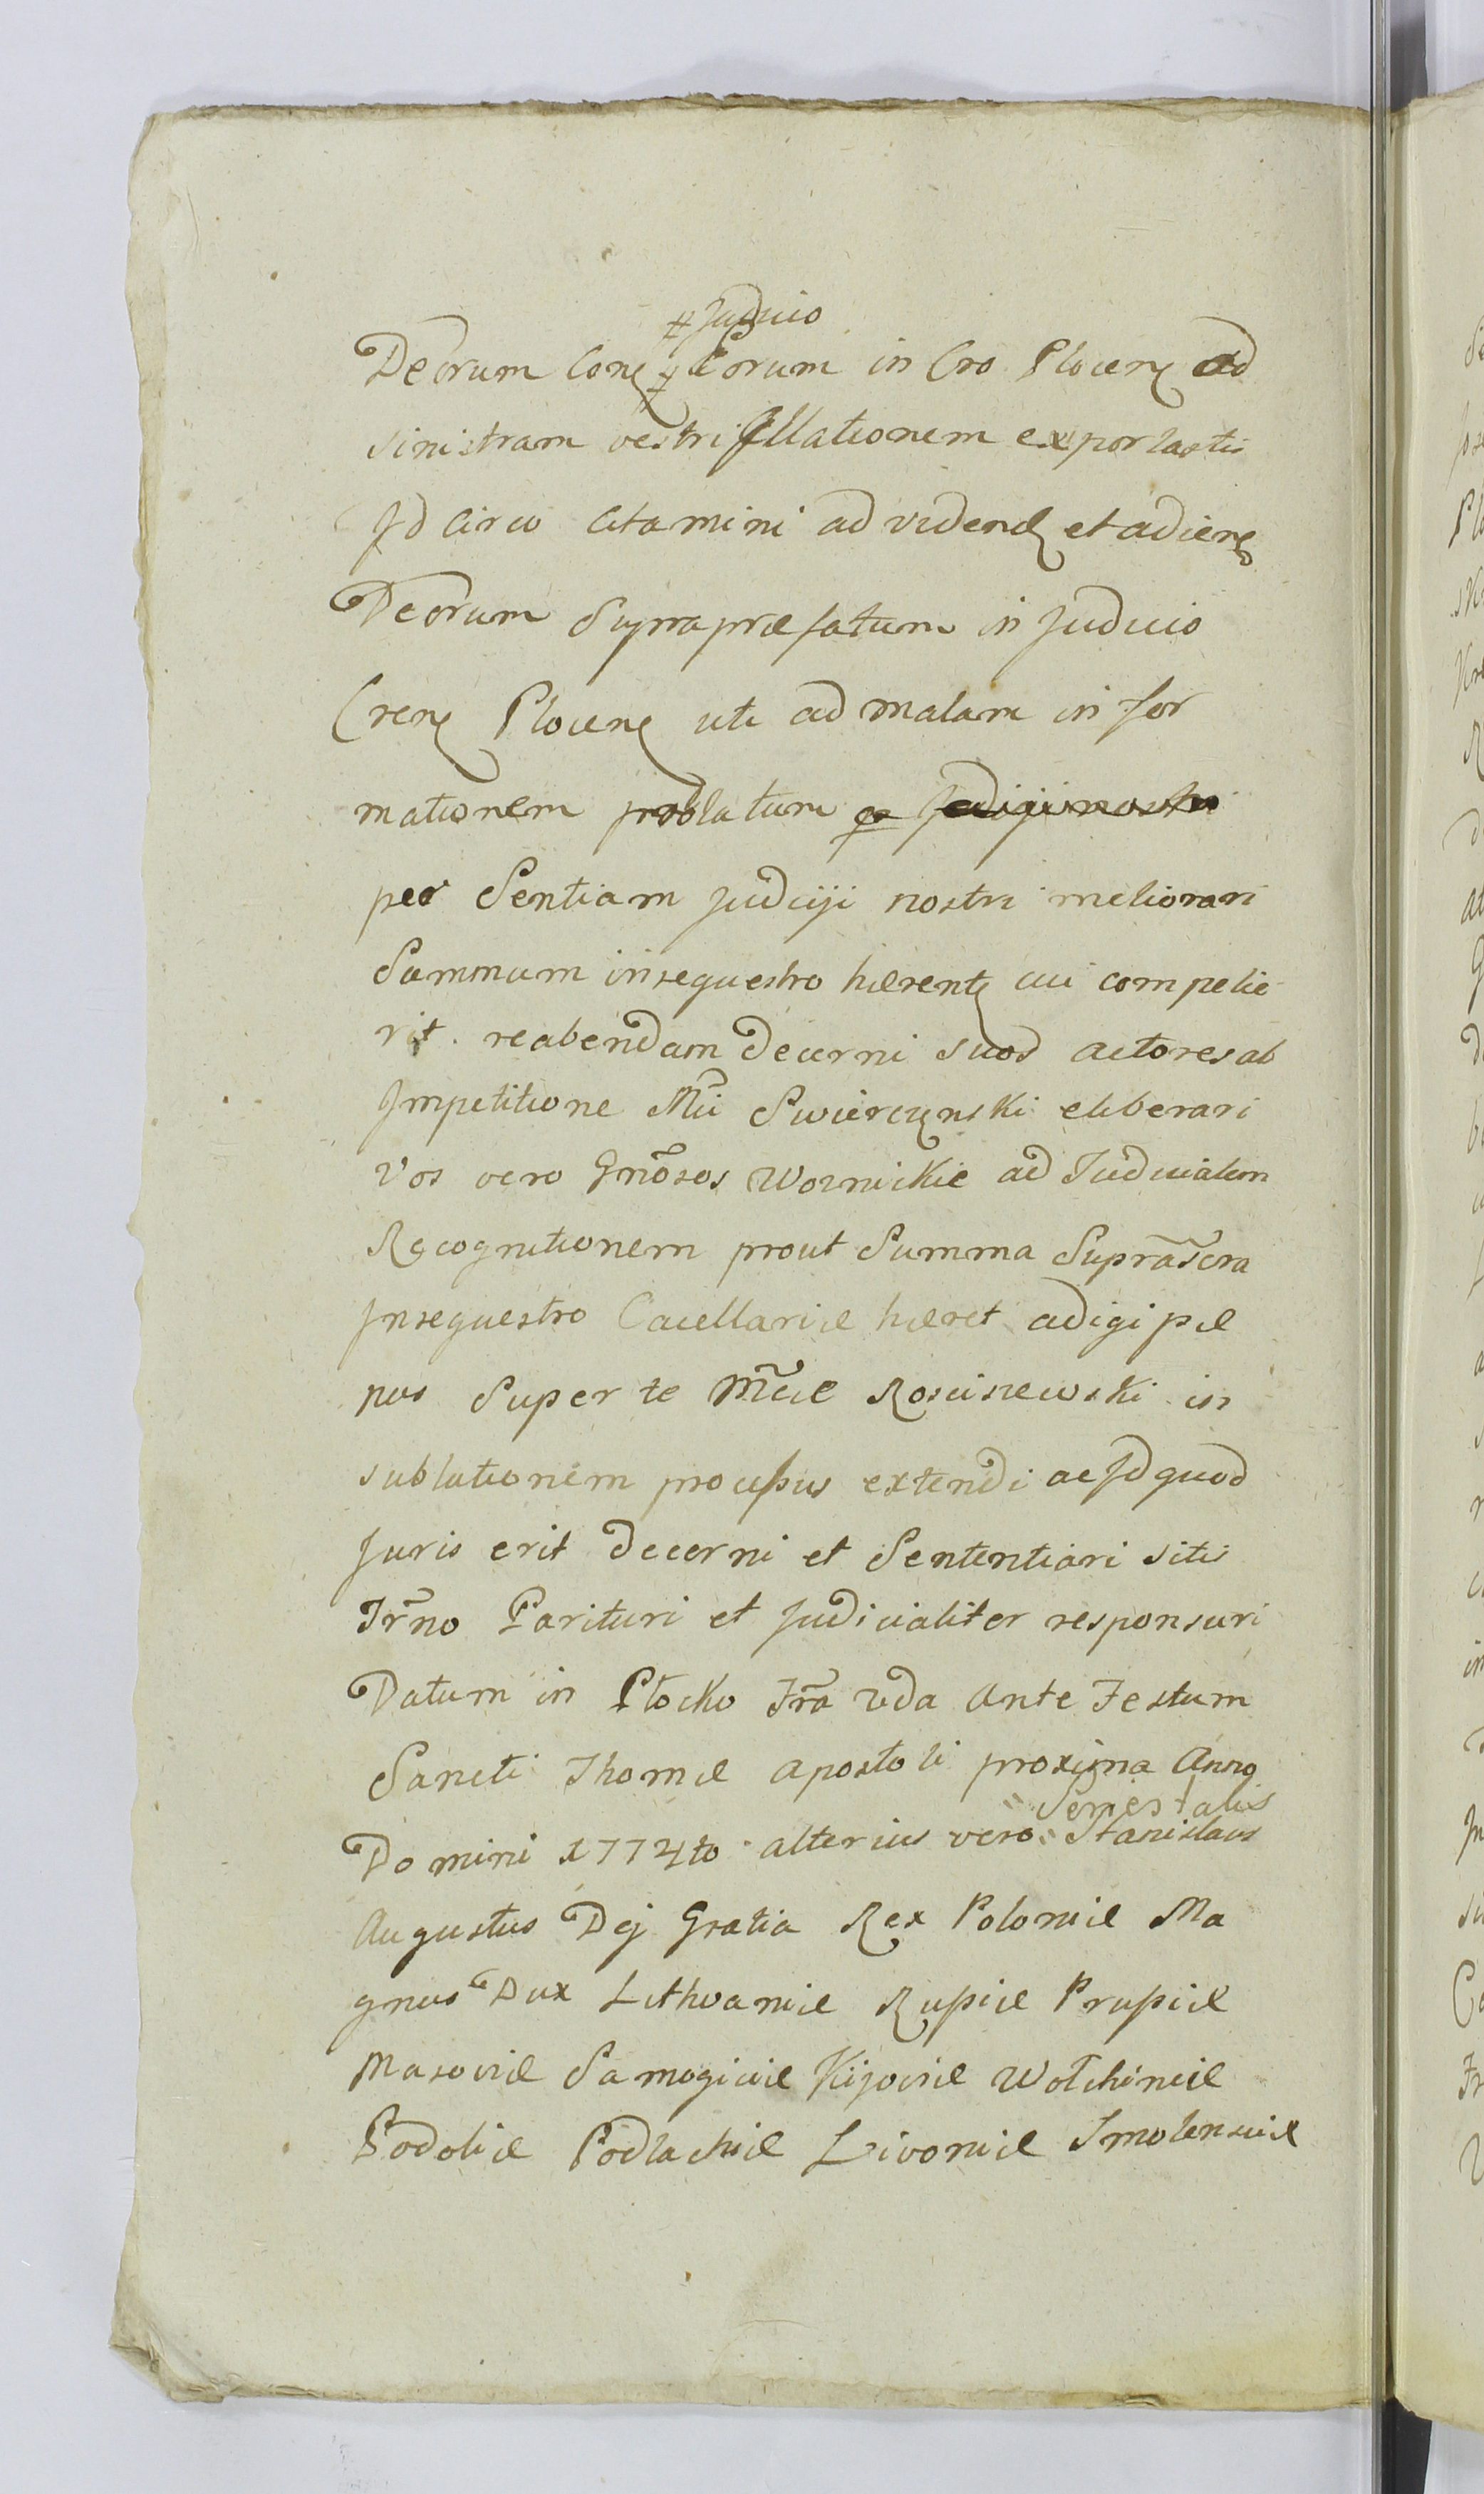 # Judicio
Decrum Conq # Eorum in Cro Plocenq ad
sinistram vestri Illationem exportastis
Id circo citamini ad videndq et adienq
Decrum Supra præfatum in Judicio
Crenq Plocenq uti ad malam infor
mationem problatum
per Sentiam Judicÿi nostri meliorari
Summam insequestro hærentq cui compelie
rit reabendam decerni suos actores ab
Impetitione Mci Swierczynski eliberari
Vos vero Gnosos Woznickie ad Judicialem
Recognitionem prout Summa Suprascra
Insequestro Cacellariæ hæret adigi pæ
nas Super te Mcie Rosciszewski in
sublationem processus extendi ac Id quod
Juris erit decerni et Sententiari sitis
Trno Parituri et Judicialiter responsuri
Datum in Płocko Fra 2da Ante Festum
Sancti Thomæ Apostoli proxima Anno
Semestalis
Domini 1774to alterius vero Stanislaus
Augustus Dej Gratia Rex Poloniæ Ma
gnus Dux Lithvaniæ Russiæ Prussiæ
Masoviæ Samogiciæ Kijoviæ Wołchiniæ
Podoliæ Podlachiæ Livoniæ Smolensciæ